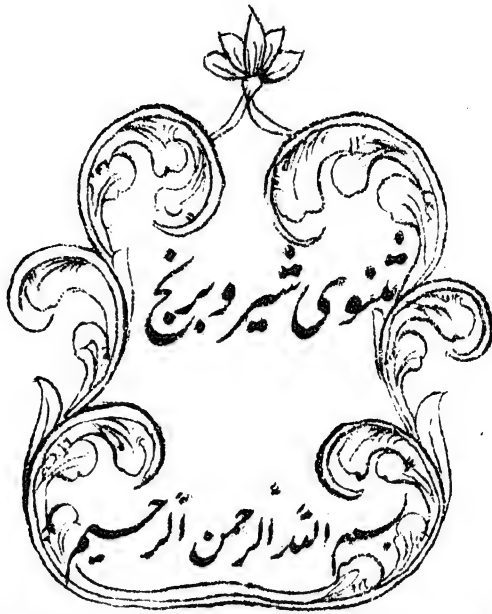 مثنوی شیر و برنج
بسم الله الرحمن الرحیم